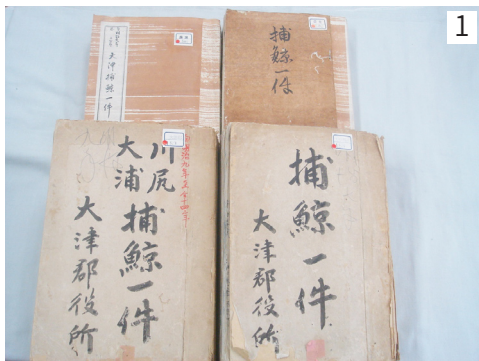 1
大津捕鯨一件
捕鯨一件
川尻
大浦
捕鯨一件
大津郡役所
捕鯨一件
大津郡役所